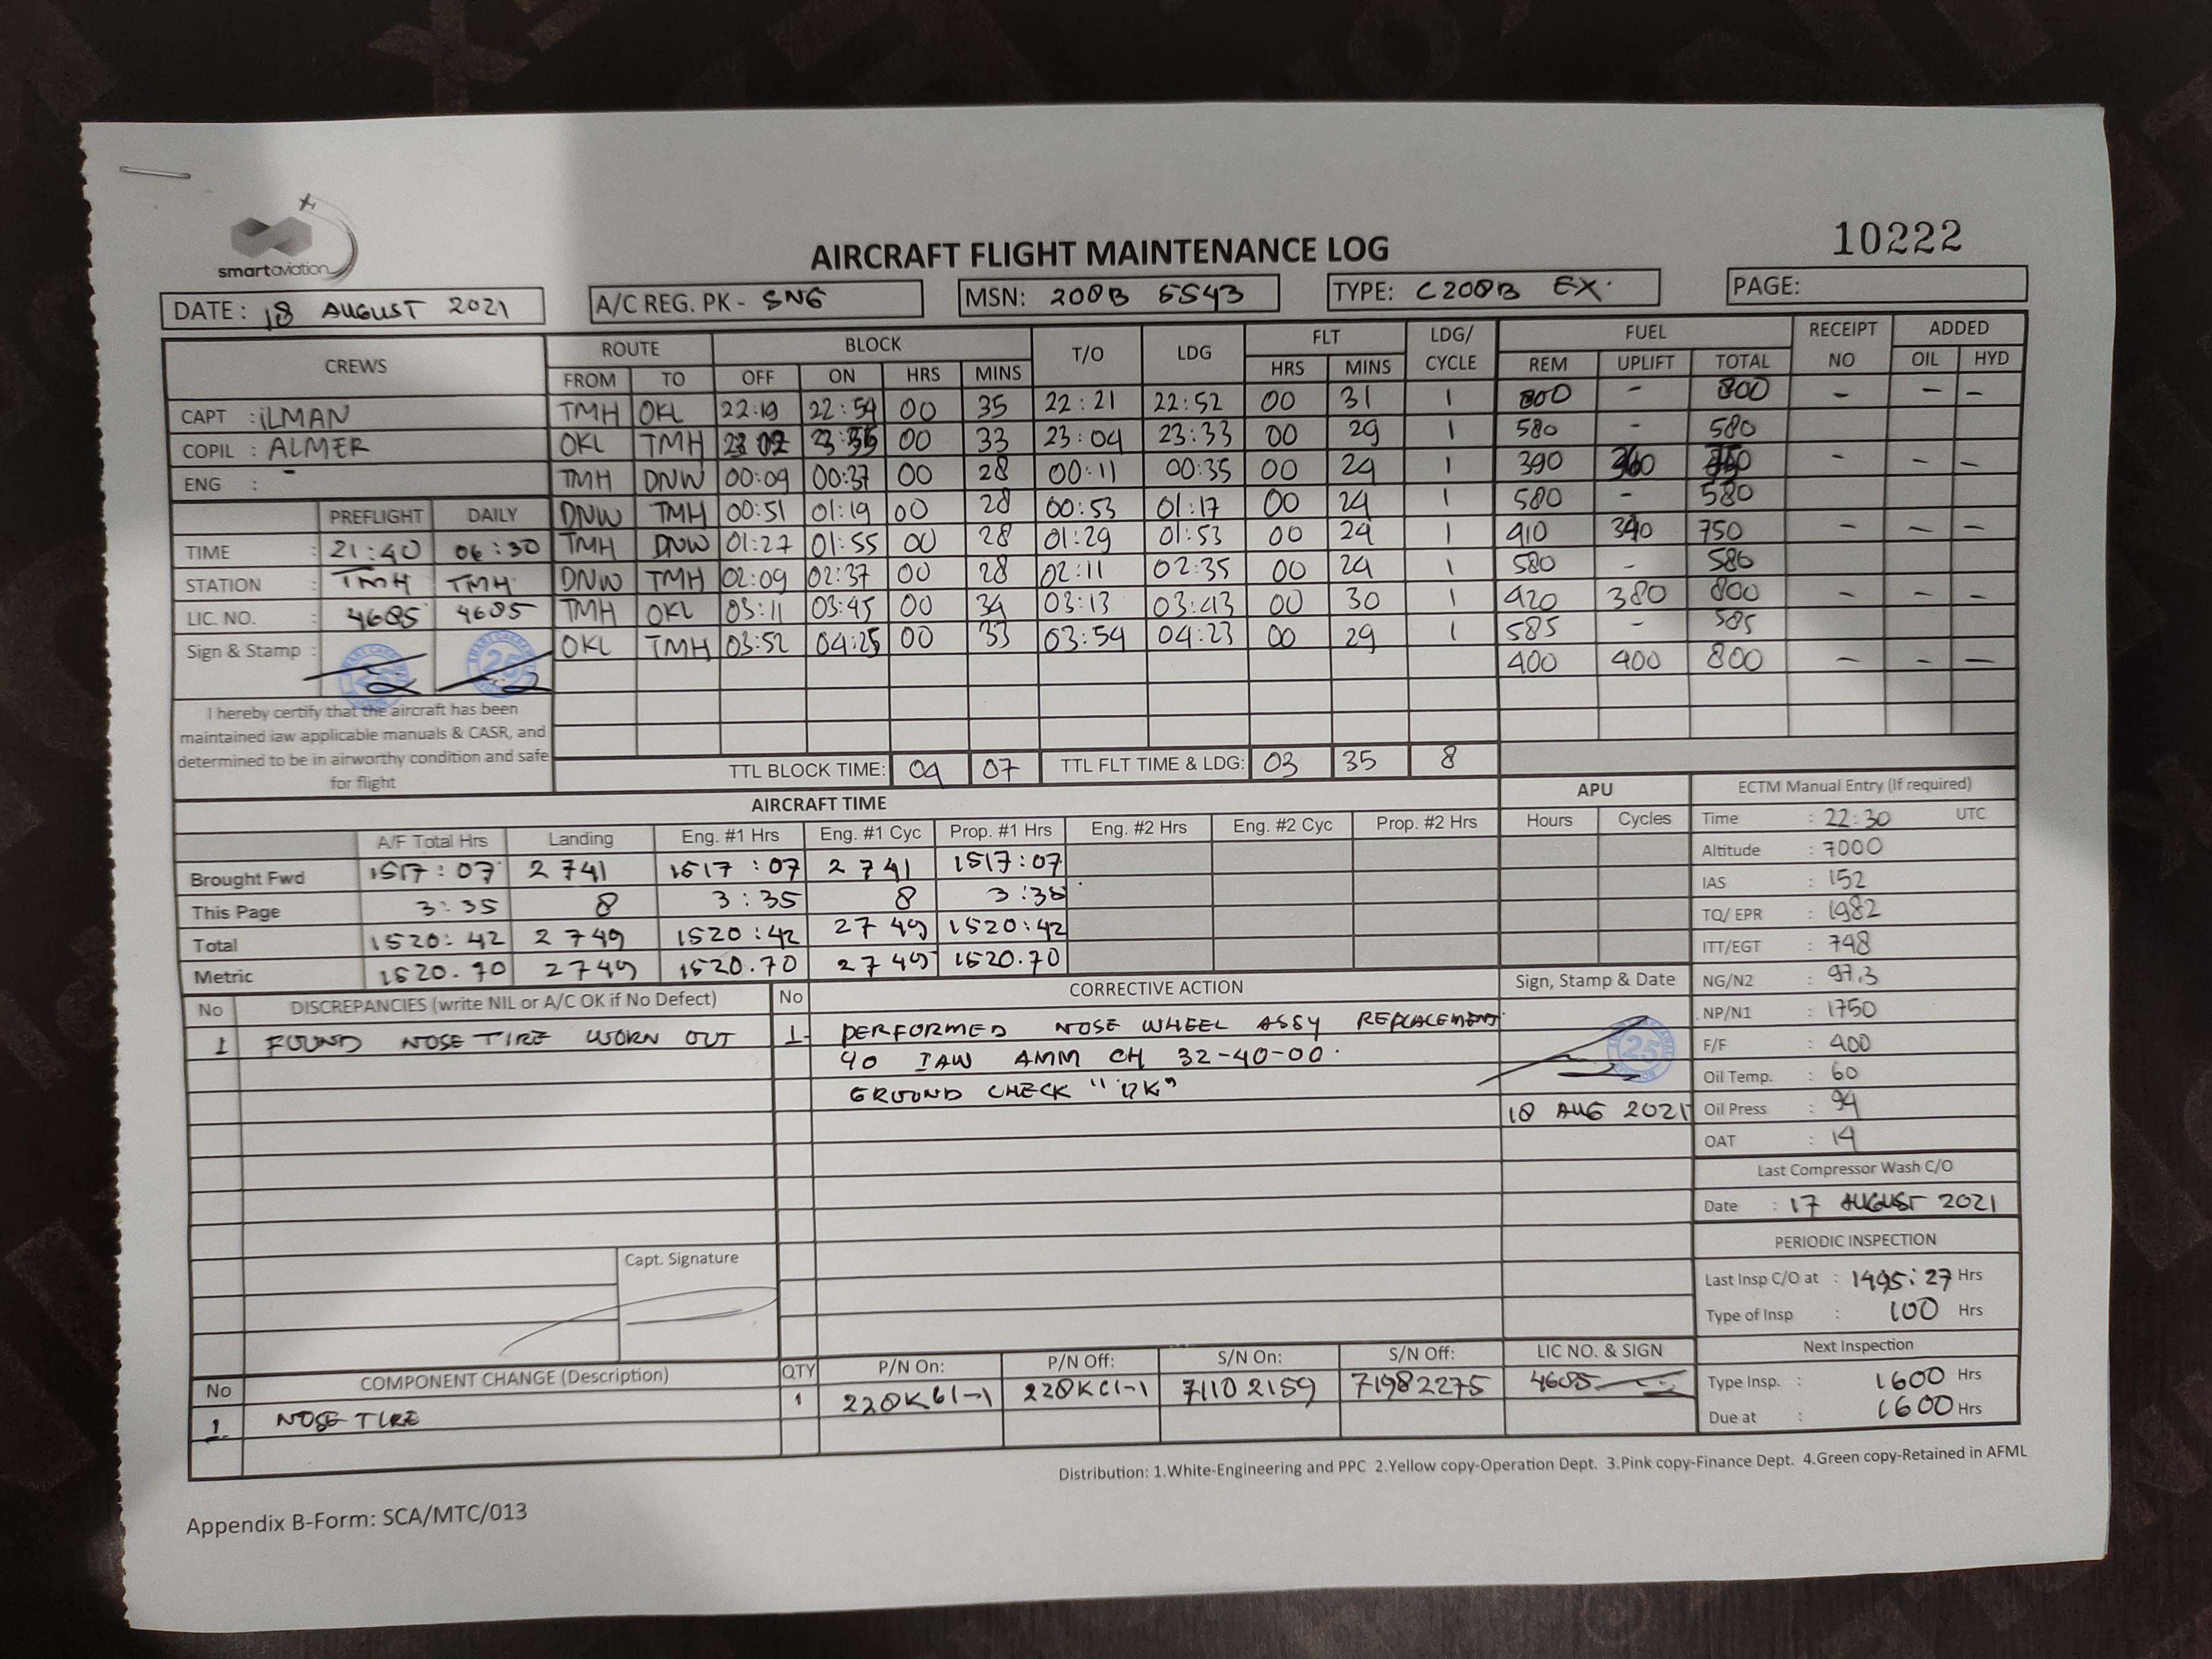 smartaviation
AIRCRAFT FLIGHT MAINTENANCE LOG
10222
DATE: 18 AUGUST 2021
A/C REG. PK - SNG
MSN: 208B 5543
TYPE: C208B EX.
PAGE:
CREWS ROUTE BLOCK T/O LDG FLT LDG/ CYCLE FUEL RECEIPT NO ADDED
FROM TO OFF ON HRS MINS HRS MINS REM UPLIFT TOTAL OIL HYD
CAPT : ILMAN TMH OKL 22:19 22:54 00 35 22:21 22:52 00 31 1 800 - 800 - - -
COPIL : ALMER OKL TMH 23 02 23:35 00 33 23:04 23:33 00 29 1 580 - 580
ENG : - TMH DNW 00:09 00:37 00 28 00:11 00:35 00 24 1 390 360 - - -
DNW TMH 00:51 01:19 00 28 00:53 01:17 00 24 1 580 - 580
PREFLIGHT DAILY
TIME : 21:40 06:30 TMH DNW 01:27 01:55 00 28 01:29 01:53 00 24 1 410 340 750 - - -
STATION : TMH TMH DNW TMH 02:09 02:37 00 28 02:11 02:35 00 24 1 580 - 580
LIC. NO. : 4685 4685 TMH OKL 03:11 03:45 00 34 03:13 03:43 00 30 1 420 380 800 - - -
Sign & Stamp : OKL TMH 03:52 04:25 00 33 03:54 04:23 00 29 1 585 - 585
400 400 800 - - -
I hereby certify that the aircraft has been
maintained iaw applicable manuals & CASR, and
determined to be in airworthy condition and safe
for flight
TTL BLOCK TIME: 04 07 TTL FLT TIME & LDG: 03 35 8
AIRCRAFT TIME
APU
A/F Total Hrs Landing Eng. #1 Hrs Eng. #1 Cyc Prop. #1 Hrs Eng. #2 Hrs Eng. #2 Cyc Prop. #2 Hrs Hours Cycles
Brought Fwd 1517:07 2741 1517:07 2741 1517:07
This Page 3:35 8 3:35 8 3:35
Total 1520:42 2749 1520:42 2749 1520:42
Metric 1520.70 2749 1520.70 2749 1520.70
ECTM Manual Entry (If required)
Time : 22:30 UTC
Altitude : 7000
IAS : 152
TQ/ EPR : 1982
ITT/EGT : 748
NG/N2 : 97.3
NP/N1 : 1750
F/F : 400
Oil Temp. : 60
Oil Press : 94
OAT : 14
Last Compressor Wash C/O
Date : 17 AUGUST 2021
PERIODIC INSPECTION
Last Insp C/O at : 1495:27 Hrs
Type of Insp : 100 Hrs
Next Inspection
Type Insp. : 1600 Hrs
Due at : 1600 Hrs
No DISCREPANCIES (write NIL or A/C OK if No Defect) No CORRECTIVE ACTION Sign, Stamp & Date
1 FOUND NOSE TIRE WORN OUT 1. PERFORMED NOSE WHEEL ASSY REPLACEMENT
40 IAW AMM CH 32-40-00.
GROUND CHECK "OK"
25
18 AUG 2021
Capt. Signature
No COMPONENT CHANGE (Description) QTY P/N On: P/N Off: S/N On: S/N Off: LIC NO. & SIGN
1. NOSE TIRE 1 71102159 71982275 4685
Distribution: 1.White-Engineering and PPC 2.Yellow copy-Operation Dept. 3.Pink copy-Finance Dept. 4.Green copy-Retained in AFML
Appendix B-Form: SCA/MTC/013